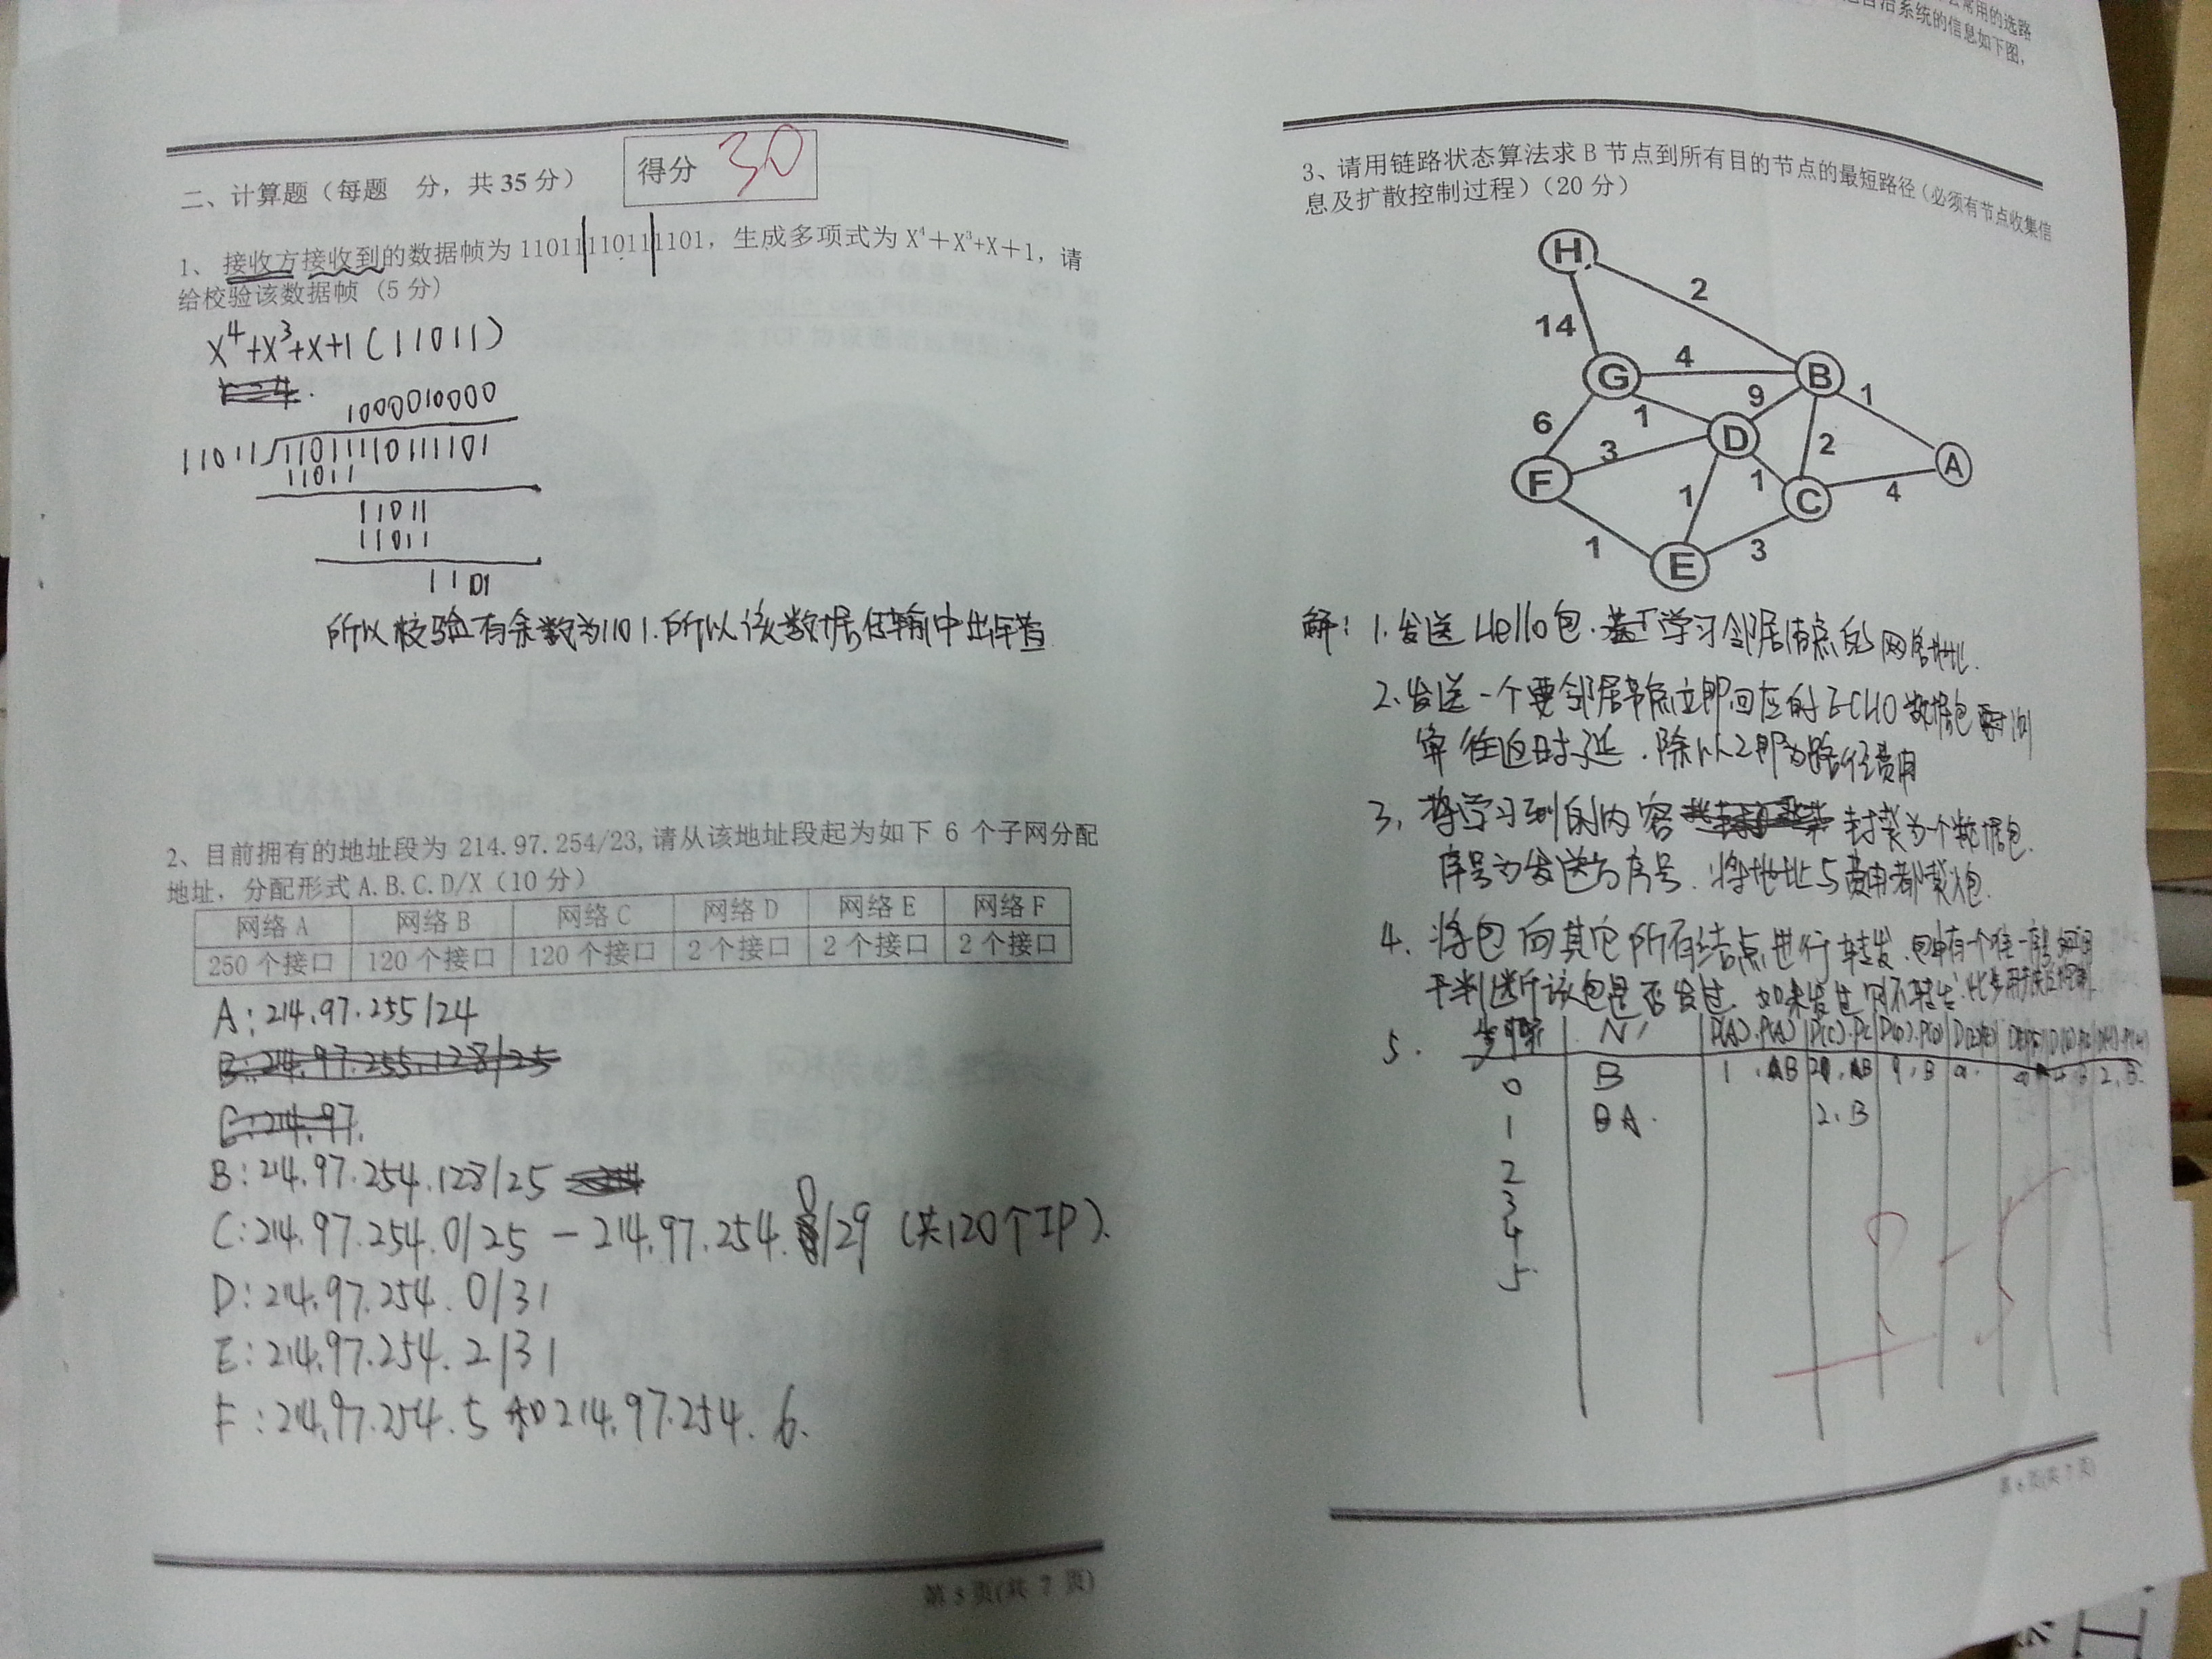 么常用的选路
自治系统的信息如下图，
二、计算题（每题 分，共 35 分）
得分 30
1、 接收方接收到的数据帧为 11011110111101，生成多项式为 X⁴＋X³+X＋1，请
给校验该数据帧（5 分）
X⁴+X³+X+1 (11011)
1000010000
11011 11011110111101
11011
11011
11011
1101
所以校验有余数为1101.所以该数据传输中出错
2、目前拥有的地址段为 214.97.254/23,请从该地址段起为如下 6 个子网分配
地址，分配形式 A.B.C.D/X（10 分）
网络 A 网络 B 网络 C 网络 D 网络 E 网络 F
250 个接口 120 个接口 120 个接口 2 个接口 2 个接口 2 个接口
A: 214.97.255/24
B: 214.97.255.128/25
C: 214.97.
B: 214.97.254.128/25
C: 214.97.254.0/25 — 214.97.254.0/29 (共120个IP).
D: 214.97.254.0/31
E: 214.97.254.2/31
F: 214.97.254.5 和 214.97.254.6.
第 5 页(共 7 页)
3、请用链路状态算法求 B 节点到所有目的节点的最短路径（必须有节点收集信
息及扩散控制过程）（20 分）
H
2
14
G 4 B
9 1
6 1 D
3 2 A
F 1 C 4
1
1 3
E
解: 1.发送Hello包.学习邻居结点的网络地址.
2.发送一个要邻居节点立即回应的ECHO数据包
算往返时延.除以2即为路径费用
3.将学习到的内容封装为一个数据包.
序号为发送方序号.将地址与费用都装入包.
4.将包向其它所有结点进行转发.包中有一个唯一序号
于判断该包是否发过.如果发过则不转发.
5. 步骤 N' D(A).P(A) D(C).P(C) D(D).P(D)
0 B 1 .AB 9,B 2,B.
1 BA. 2,B
2
3
4
5
-5
第 6 页(共 7 页)